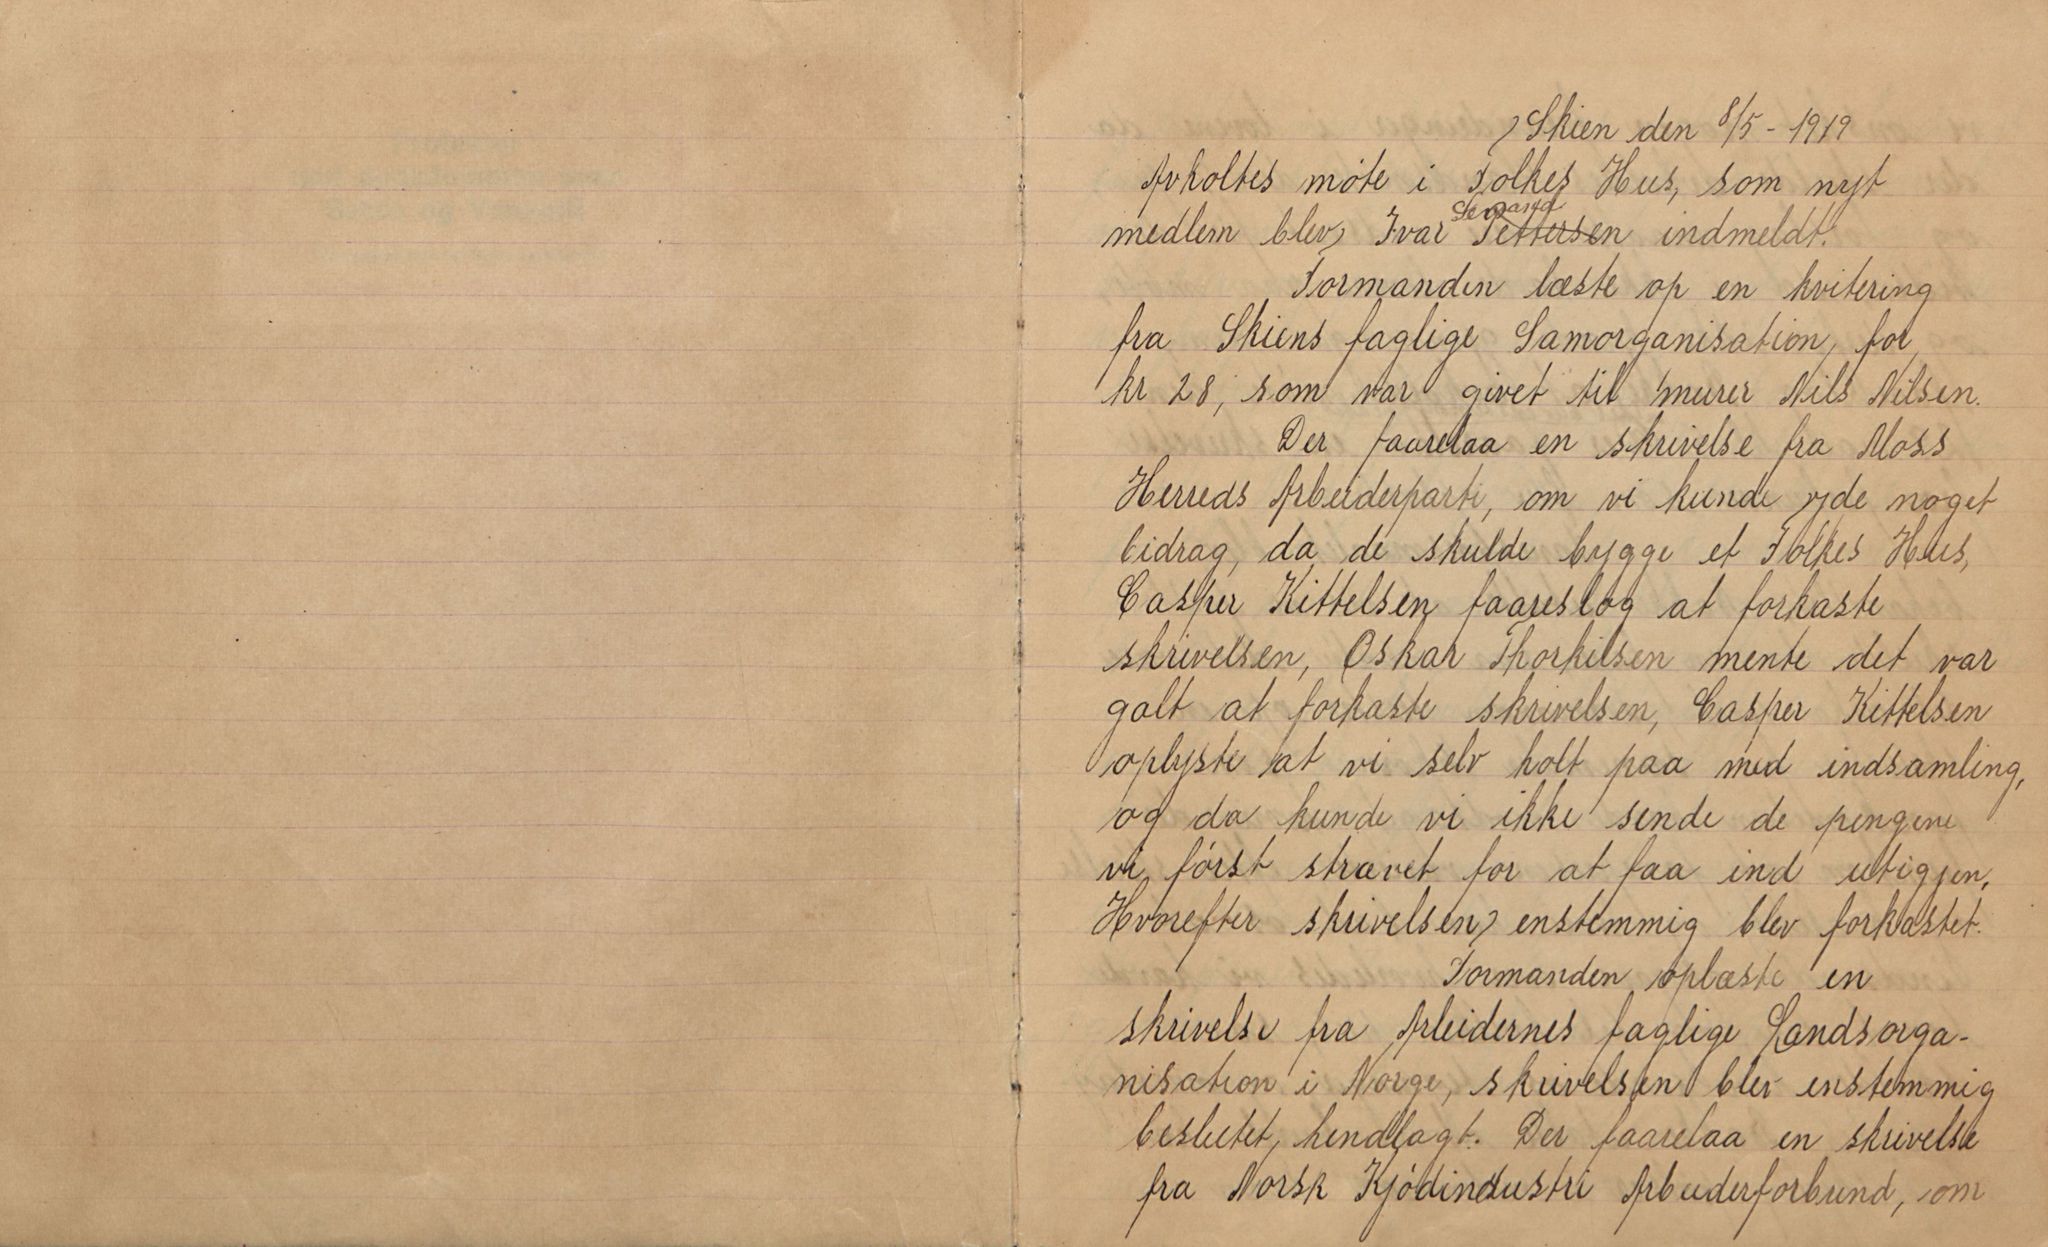 Skien den 8/5 - 1919
Avholtes möte i Folkes Hus, som nyt
medlem blev Ivar Pettersen indmeldt.
Formanden læste op en kvitering
fra Skiens faglige Samorganisation, for
kr 28, som var givet til murer Nils Nilsen.
Der faarelaa en skrivelse fra Moss
Herreds Arbeiderparti, om vi kunde yde noget
bidrag, da de skulde bygge et Folkes Hus,
Casper Kittelsen faareslog at forkaste
skrivelsen, Oskar Thorkilsen mente det var
galt at forkaste skrivelsen, Casper Kittelsen
oplyste at vi selv holt paa med indsamling,
og da kunde vi ikke sende de pengene
vi först strævet for at faa ind utigjen,
Hvorefter skrivelsen enstemmig blev forkastet.
Formanden oplæste en
skrivelse fra Arbeidernes faglige Landsorga-
nisation i Norge, skrivelsen blev enstemmig
beslutet, henlagt. Der faarelaa en skrivelse
fra Norsk Kjödindustri Arbeiderforbund, om